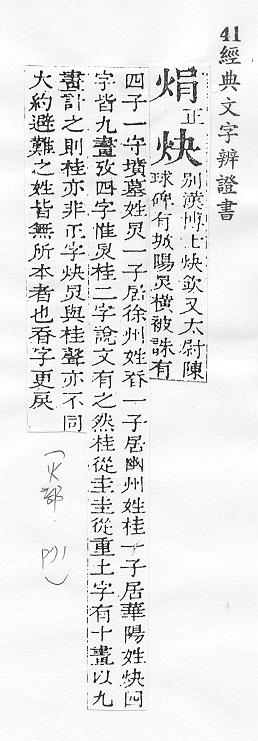 41經典文字辨證書
焆正炔別漢博士炔欽又太尉陳
球碑有城陽炅橫被誅有
四子一守墳墓姓炅一子居徐州姓昋一子居幽州姓桂一子居華陽姓炔四
字皆九畫攷四字惟炅桂二字說文有之然桂從圭圭從重土字有十畫以九
畫計之則桂亦非正字炔炅與桂聲亦不同
大約避難之姓皆無所本者也昋字更戾
(火部